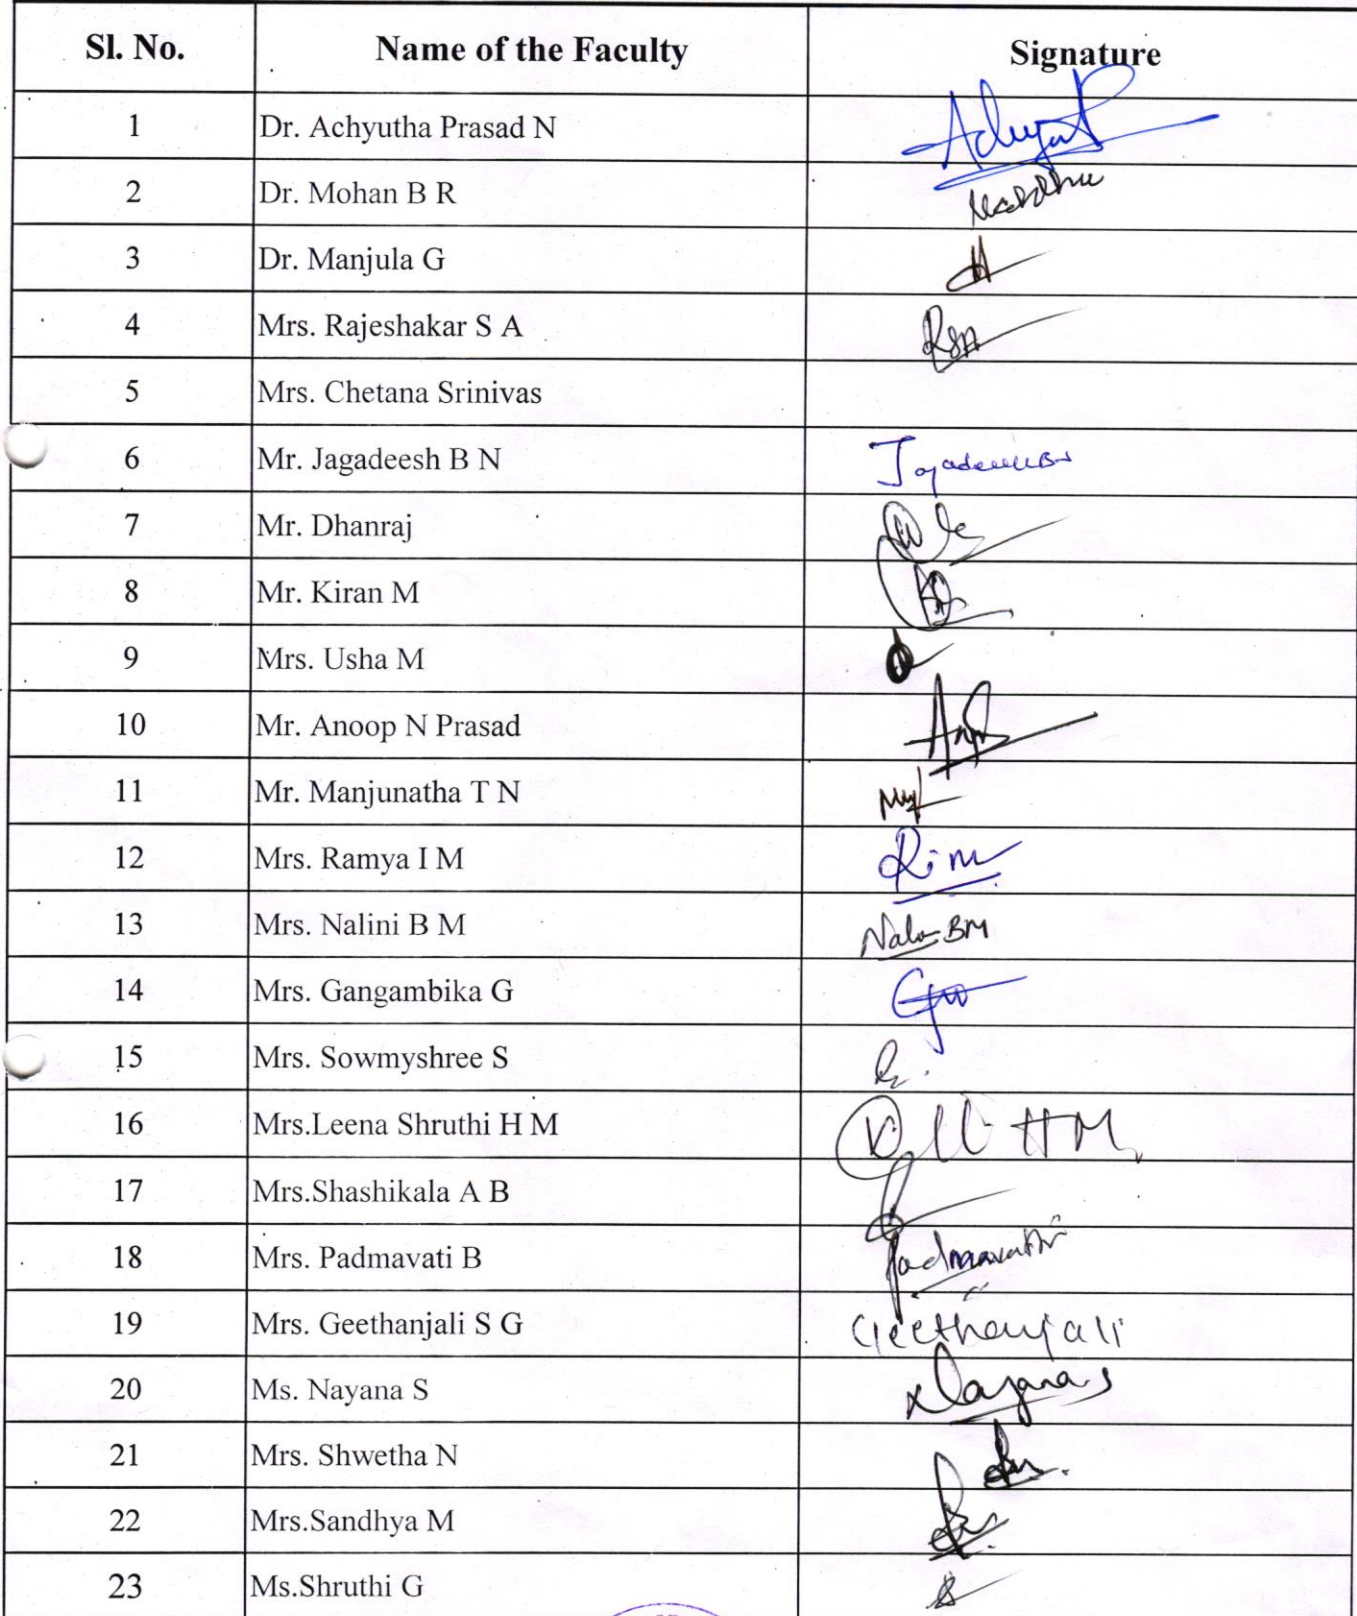 Sl. No. Name of the Faculty Signature
1 Dr. Achyutha Prasad N
2 Dr. Mohan B R
3 Dr. Manjula G
4 Mrs. Rajeshakar S A RSA
5 Mrs. Chetana Srinivas
6 Mr. Jagadeesh B N
7 Mr. Dhanraj
8 Mr. Kiran M
9 Mrs. Usha M
10 Mr. Anoop N Prasad
11 Mr. Manjunatha T N
12 Mrs. Ramya I M
13 Mrs. Nalini B M BM
14 Mrs. Gangambika G
15 Mrs. Sowmyshree S
16 Mrs.Leena Shruthi H M HM
17 Mrs.Shashikala A B
18 Mrs. Padmavati B Padmavathi
19 Mrs. Geethanjali S G Geethanjali
20 Ms. Nayana S Nayana S
21 Mrs. Shwetha N
22 Mrs.Sandhya M
23 Ms.Shruthi G